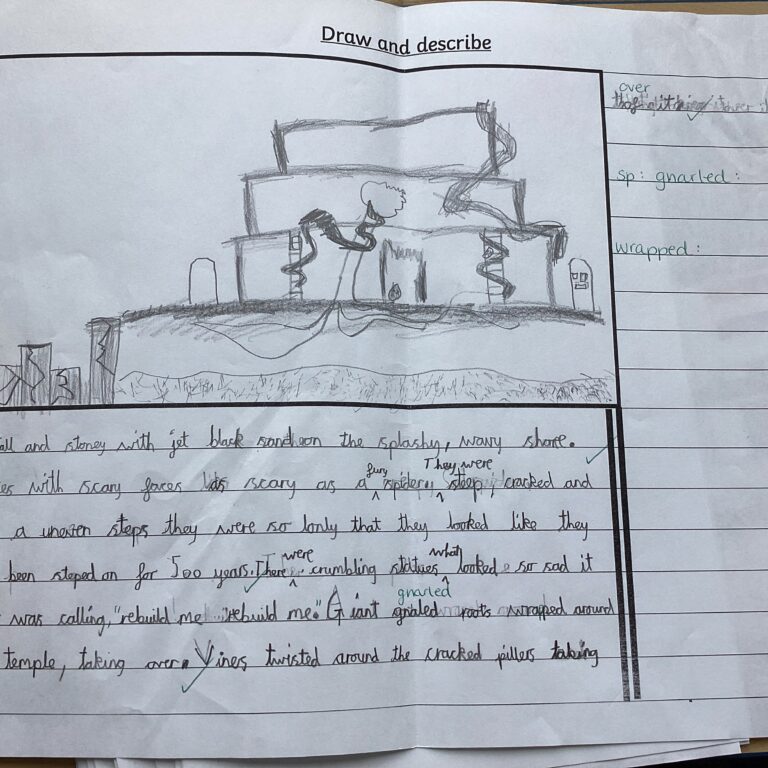 Draw and describe
over
sp: gnarled:
wrapped:
all and stoney with jet black sandheon the splashy, wavy shore.
es with scary faces as scary as a fury spider. They were steep, cracked and
a unexten steps they were so lonly that they looked like they
been steped on for 500 years. There were crumbling statues what looked so sad it
was calling, "rebuild me rebuild me." Giant gnarled gnaled roots wrapped around
temple, taking over. Vines twisted around the cracked pillers taking